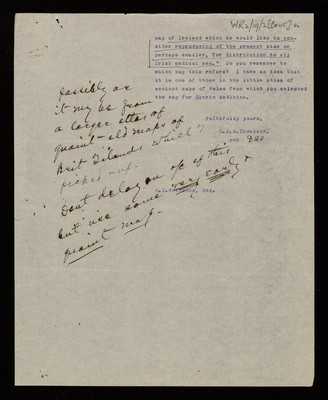 WR2/19/2[Cont.]
map of Ireland which he would like to con-
sider reproducing of the present size or
perhaps smaller, for distribution to all
Irish medical men." Do you remember to
which map this refers? I have an idea that
it is one of those in the little atlas of
ancient maps of Wales from which you selected
the map for Cymric Medicine.
Faithfully yours,
C.J.S.Thompson,
per
Esq.
Possibly or
it may be from
a larger atlas of
quaint - old maps of
Brit Islands which I
picked - up.
Dont delay on a/c of this
but use some very early &
quaint map.